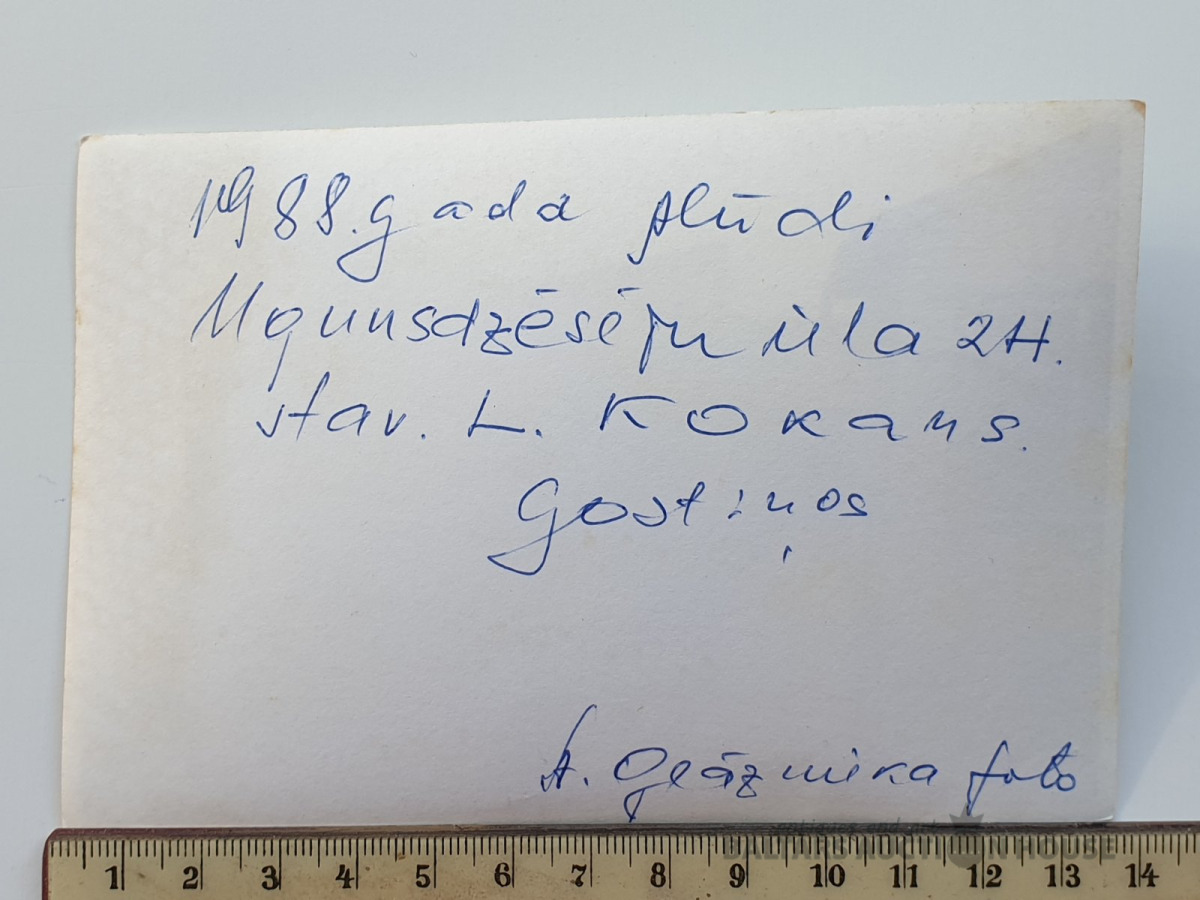 1988. gada plūdi
Ugunsdzēsēju iela 2H.
stav. L. Kokans.
Gostiņos
A. Glāznieka foto
BALTIC'S AUCTION HOUSE
1 2 3 4 5 6 7 8 9 10 11 12 13 14